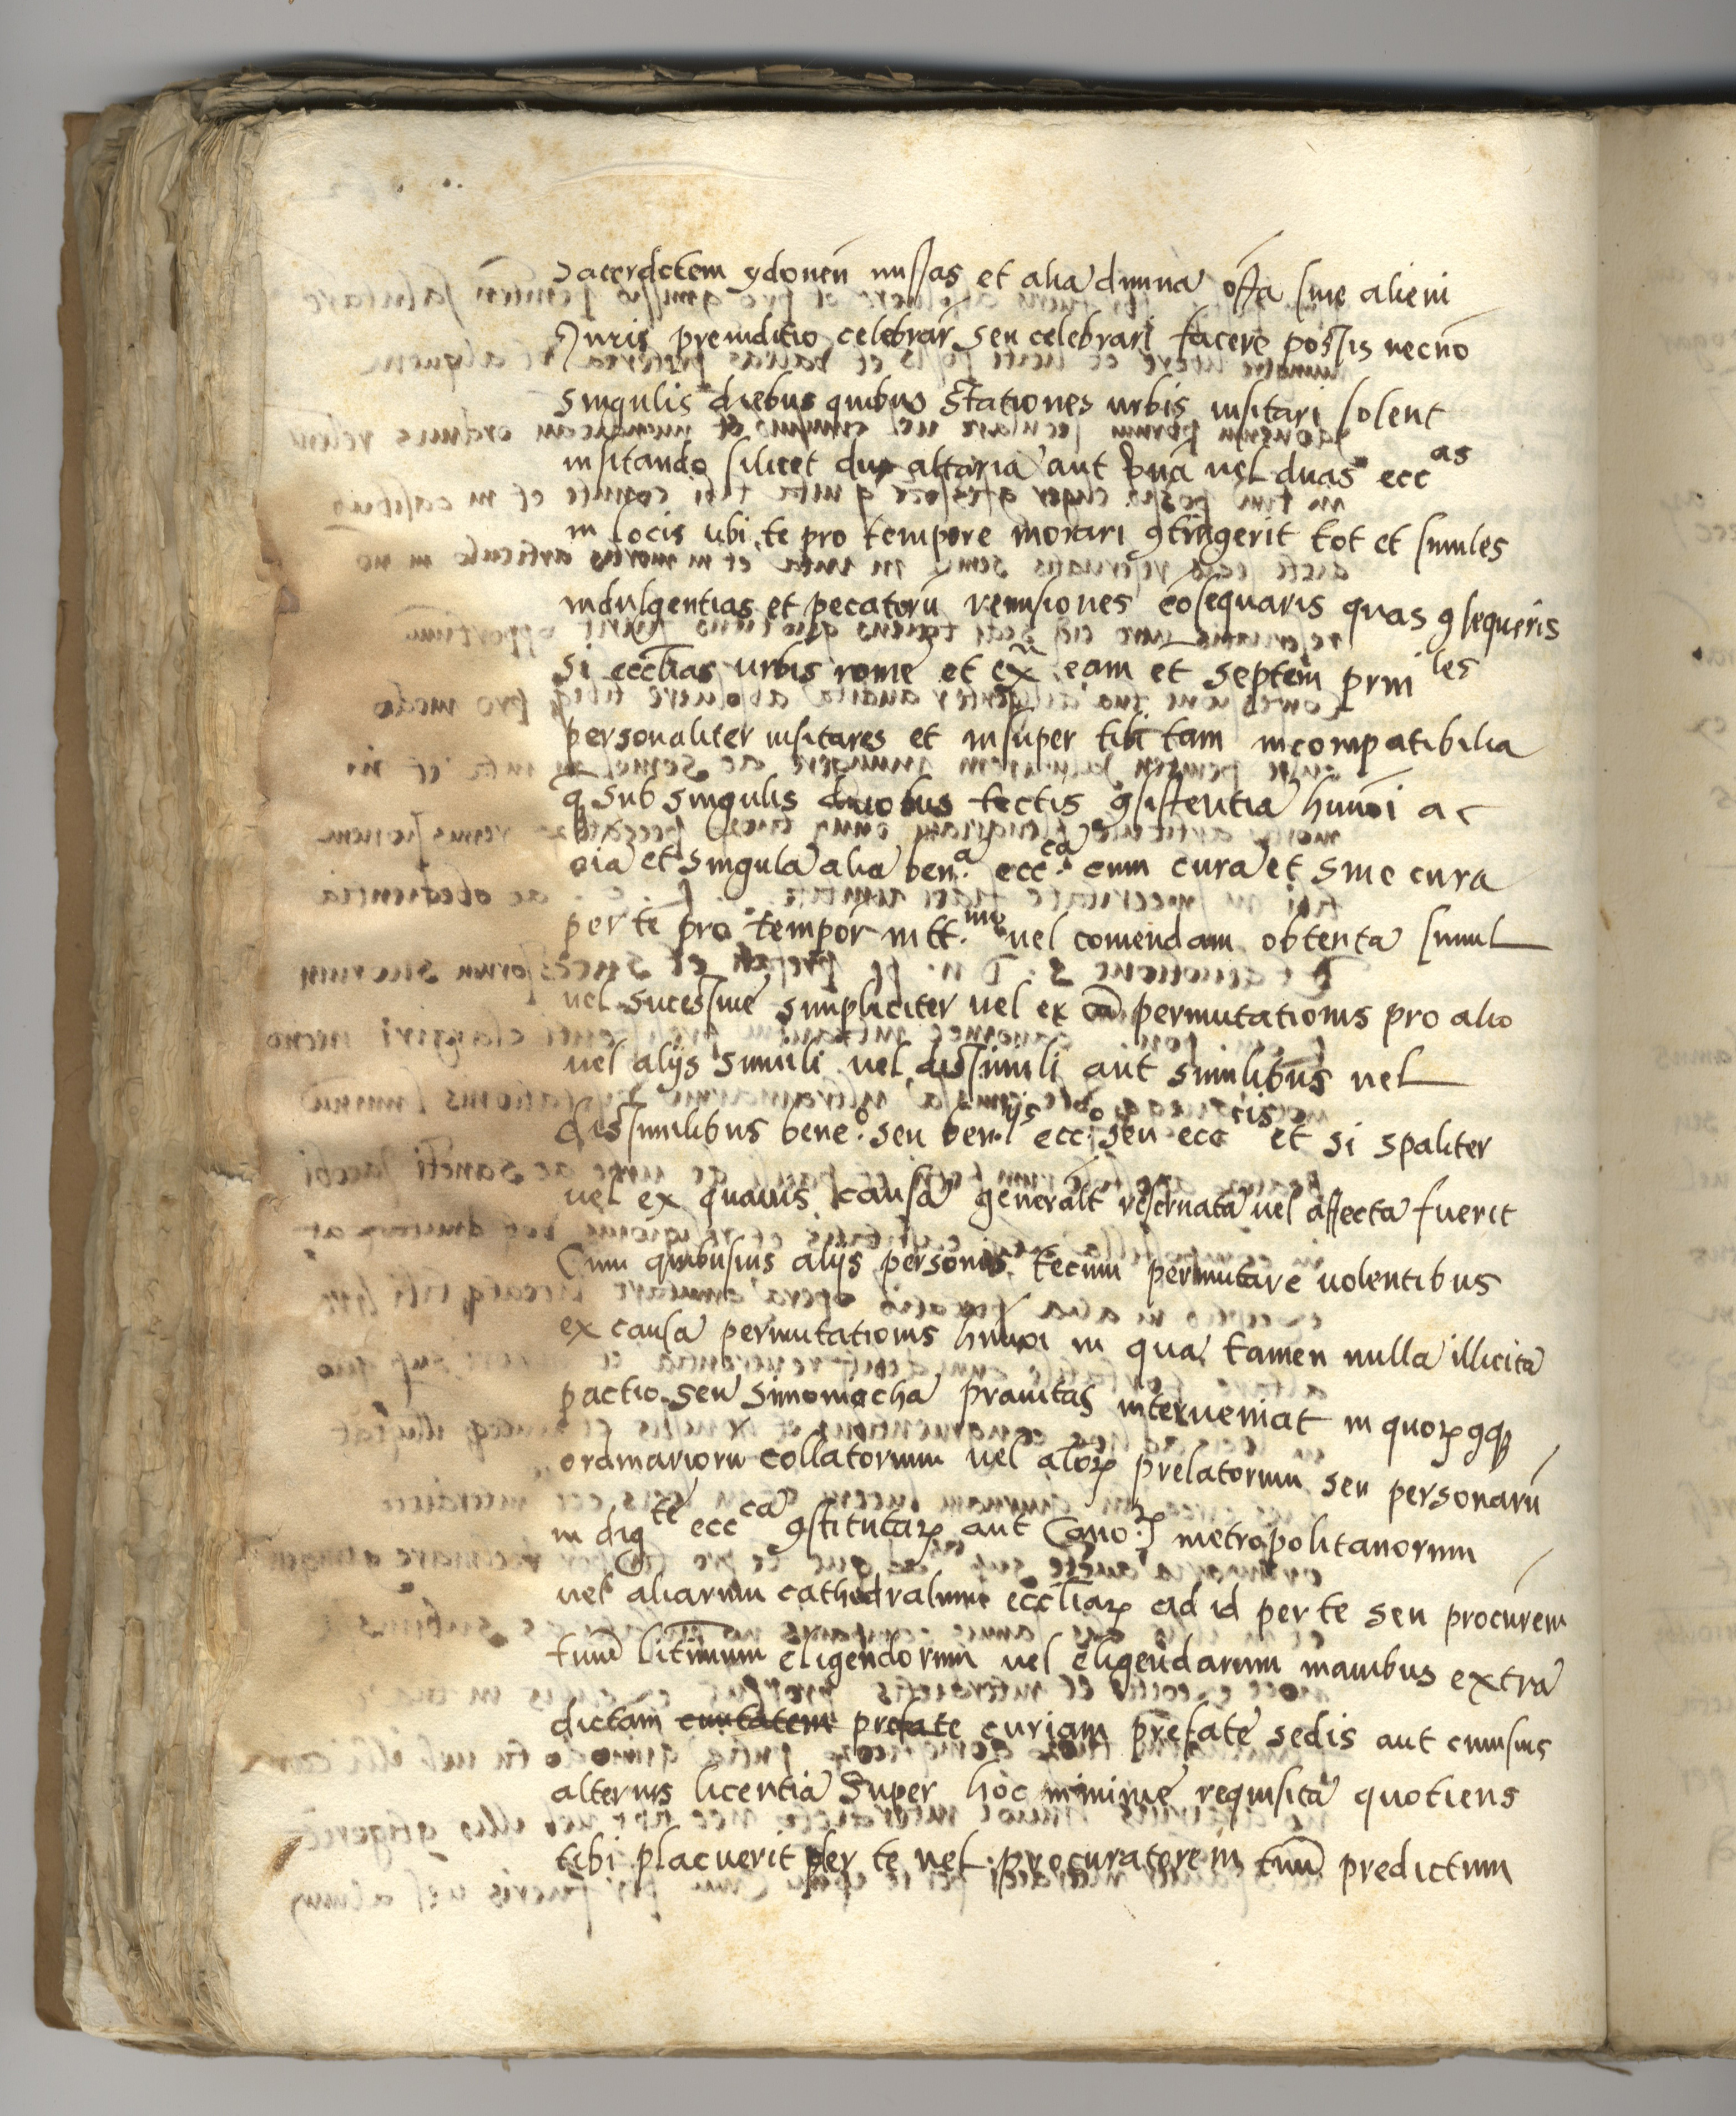 sacerdotem ydoneũ missas et alia diuina offa sine alieni
Juris preiuditio celebrar̃ seu celebrari facere possis necnõ
singulis diebus quibus stationes urbis uisitari solent
uisitando silicet duo altaria aut vnã uel duas ecc^as
in locis ubi te pro tempore morari ꝯtingerit tot et similes
indulgentias et pecatorũ remisiones cõsequaris quas ꝯsequeris
si ecctias urbis rome et ex^a eam et septem prin^les
personaliter uisitares et insuper tibi tam incompatibilia
q̃ sub singulis duobus tectis ꝯsistentia huiõi ac
oĩa et singula alia ben.^a ecc.^ca cum cura et sine cura
per te pro tempor̃ in tt.^mo uel comendam obtenta simul
uel sucessiue simpliciter uel ex cã permutationis pro alio
uel alijs simili uel dissimili aut similibus uel
dissimilibus bene.^o seu ben.^ijs ecc.^o seu ecc^cis et si spaliter
uel ex quauis causa generalt̃ reseruata uel affecta fuerit
Cum quibusuis alijs personis tecum permutare uolentibus
ex causa permutationis huiõi in qua tamen nulla illicita
pactio seu simoniacha prauitas interueniat in quoꝝ ꝯqꝫ
ordinariorũ collatorum uel alioꝝ prelatorum seu personarũ
in dig^te ecc^ca ꝯstitutaꝝ aut Cano.ꝝ metropolitanorum
uel aliarum cathedralium ecctiaꝝ ad id per te seu procurem
tuũ litimum eligendorum uel eligendarum manibus extra
dictam ciuitatem prefate curiam prefate sedis aut cuiusuis
alterius licentia super hoc minime requisita quotiens
tibi placuerit per te uel procuratorem tuũ predictum